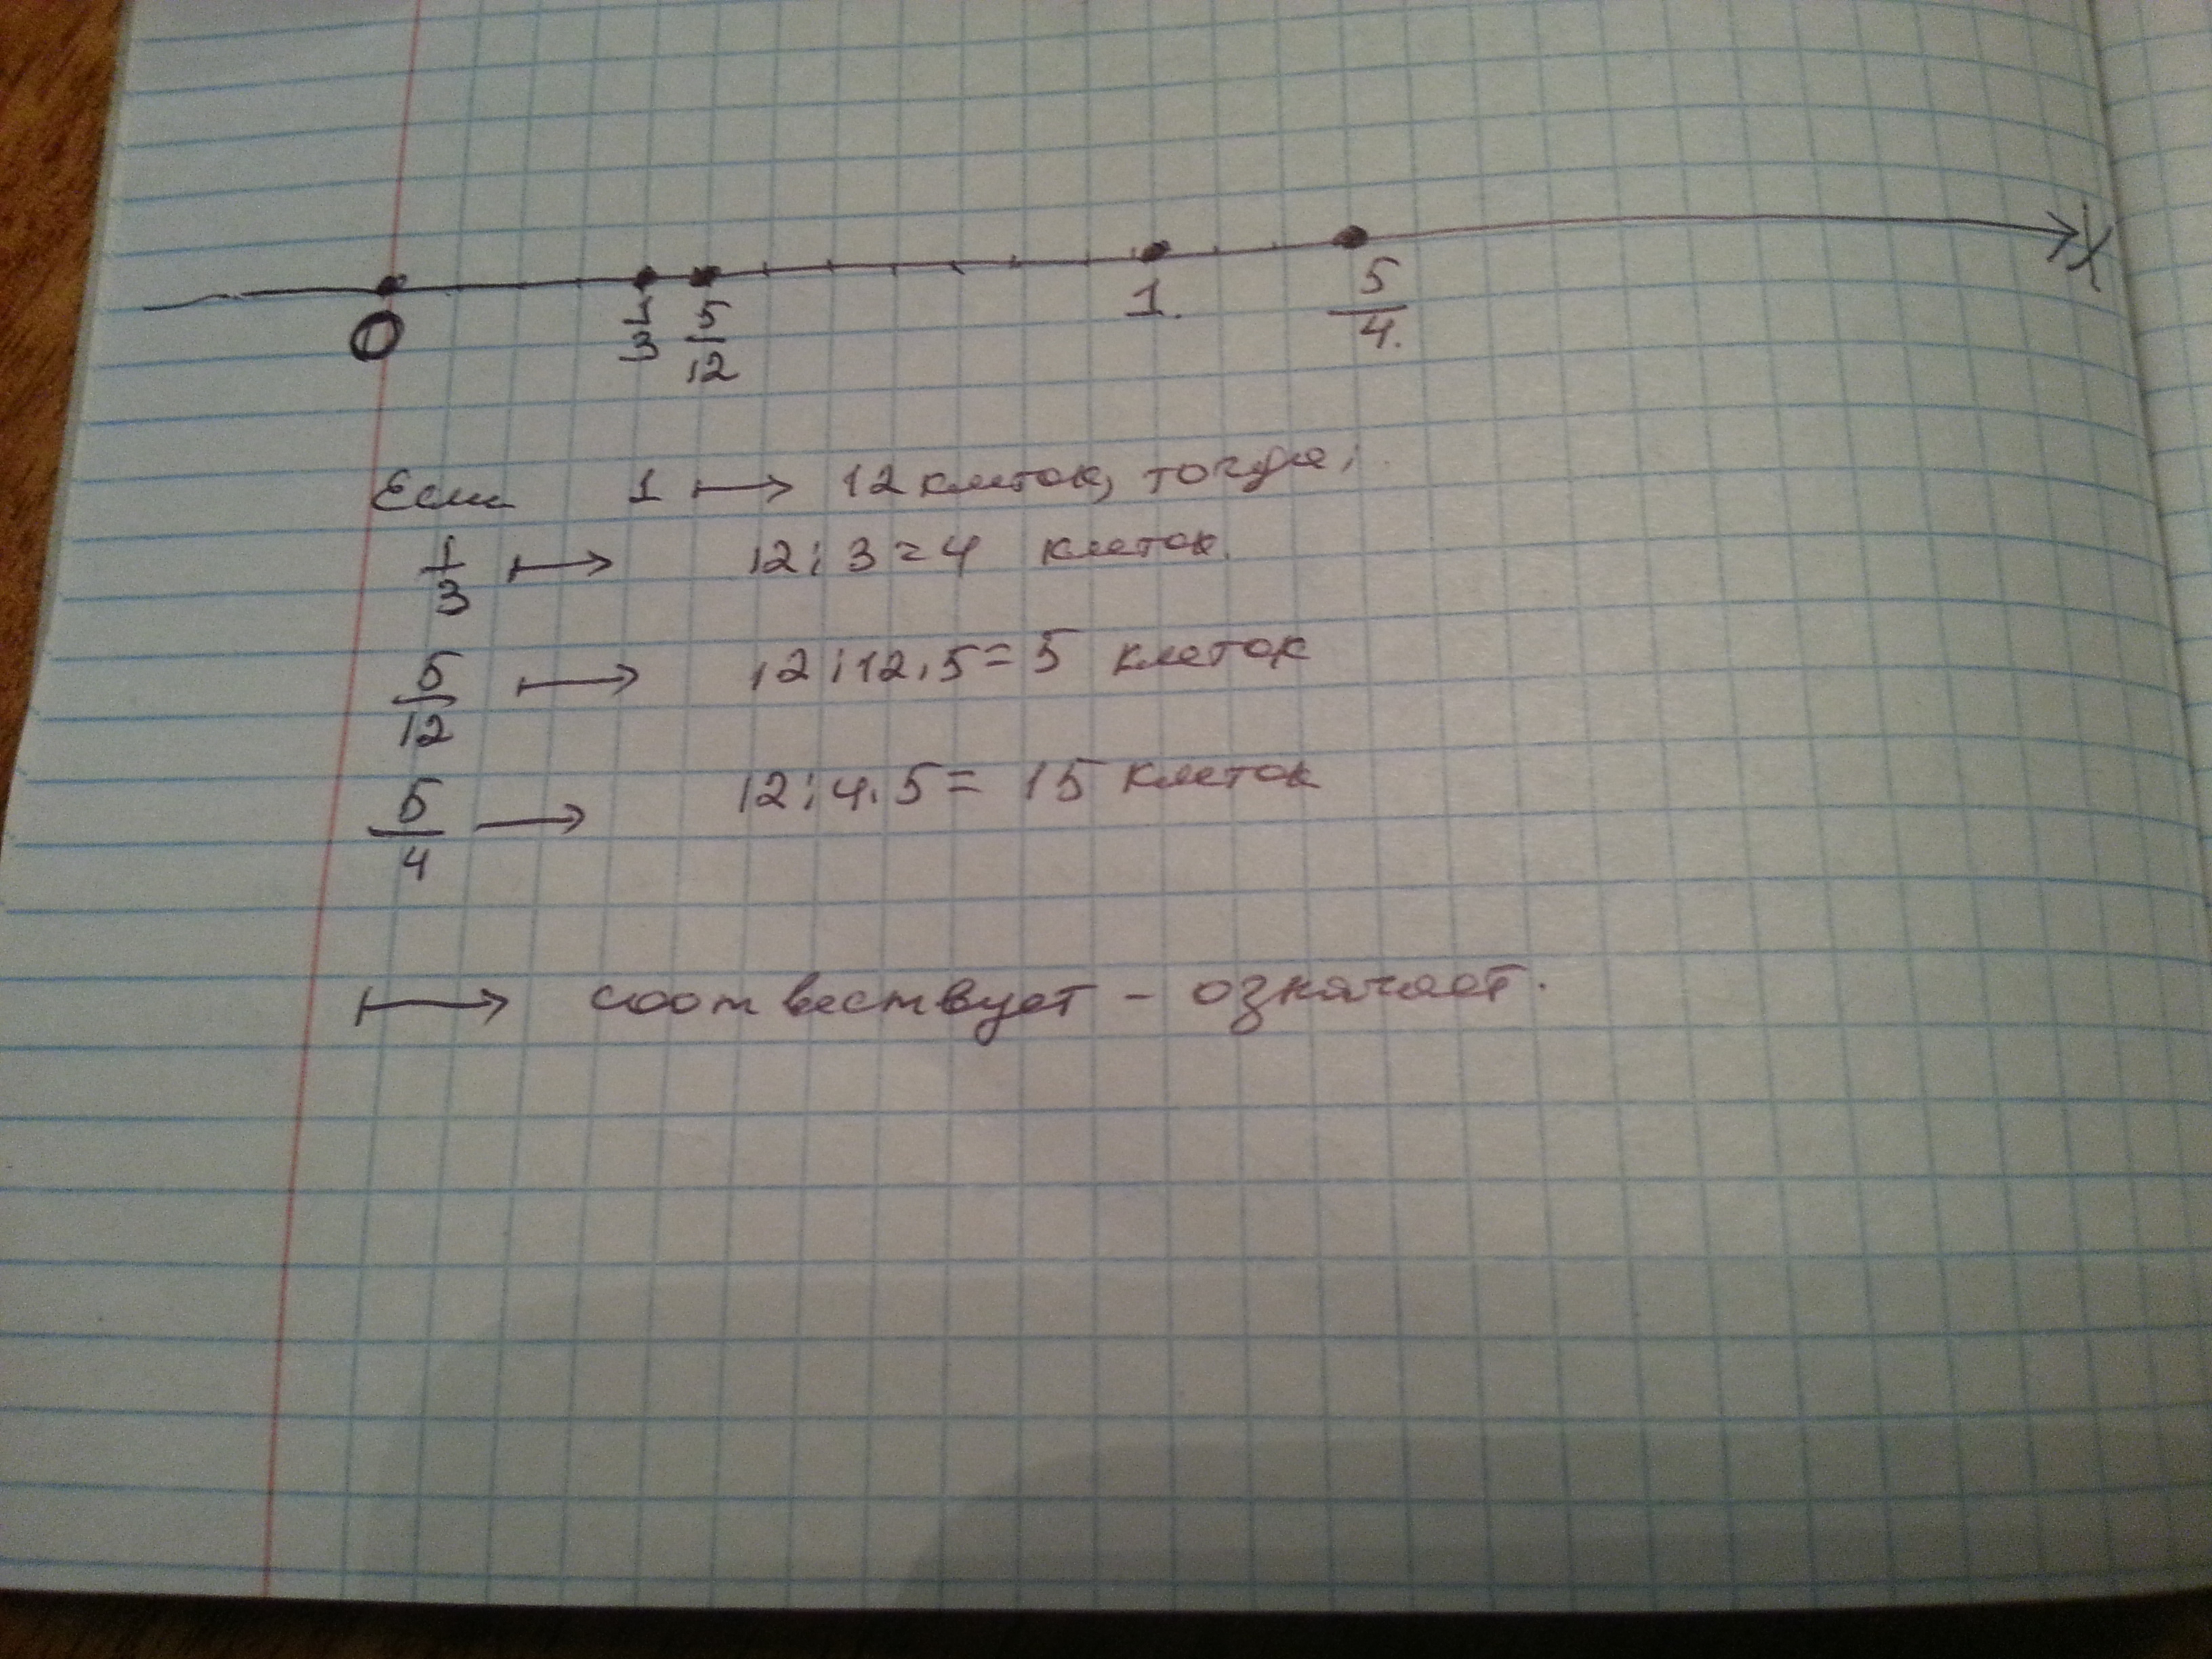 X
0 1/3 5/12 1. 5/4.
Если 1 ↦ 12 клеток, тогда:
1/3 ↦ 12 : 3 = 4 клеток.
5/12 ↦ 12 : 12 . 5 = 5 клеток
5/4 → 12 : 4 . 5 = 15 клеток
↦ соотвествует - означает.